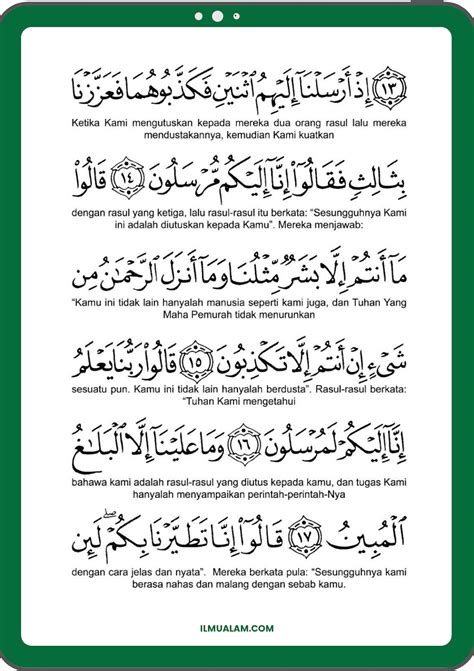 ﴿١٣﴾ إِذْ أَرْسَلْنَآ إِلَيْهِمُ ٱثْنَيْنِ فَكَذَّبُوهُمَا فَعَزَّزْنَا
Ketika Kami mengutuskan kepada mereka dua orang rasul lalu mereka
mendustakannya, kemudian Kami kuatkan
بِثَالِثٍ فَقَالُوٓا۟ إِنَّآ إِلَيْكُم مُّرْسَلُونَ ﴿١٤﴾ قَالُوا۟
dengan rasul yang ketiga, lalu rasul-rasul itu berkata: “Sesungguhnya Kami
ini adalah diutuskan kepada Kamu”. Mereka menjawab:
مَآ أَنتُمْ إِلَّا بَشَرٌ مِّثْلُنَا وَمَآ أَنزَلَ ٱلرَّحْمَـٰنُ مِن
“Kamu ini tidak lain hanyalah manusia seperti kami juga, dan Tuhan Yang
Maha Pemurah tidak menurunkan
شَىْءٍ إِنْ أَنتُمْ إِلَّا تَكْذِبُونَ ﴿١٥﴾ قَالُوا۟ رَبُّنَا يَعْلَمُ
sesuatu pun. Kamu ini tidak lain hanyalah berdusta”. Rasul-rasul berkata:
“Tuhan Kami mengetahui
إِنَّآ إِلَيْكُمْ لَمُرْسَلُونَ ﴿١٦﴾ وَمَا عَلَيْنَآ إِلَّا ٱلْبَلَـٰغُ
bahawa kami adalah rasul-rasul yang diutus kepada kamu, dan tugas Kami
hanyalah menyampaikan perintah-perintah-Nya
ٱلْمُبِينُ ﴿١٧﴾ قَالُوٓا۟ إِنَّا تَطَيَّرْنَا بِكُمْ ۖ لَئِن
dengan cara jelas dan nyata”. Mereka berkata pula: “Sesungguhnya Kami
berasa nahas dan malang dengan sebab kamu.
ILMUALAM.COM